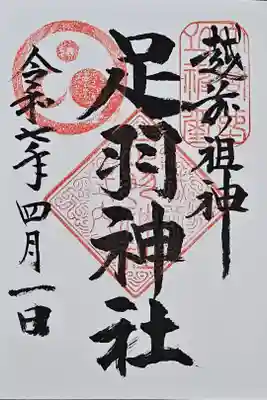 越前の祖神
足羽神社
令和七年四月一日